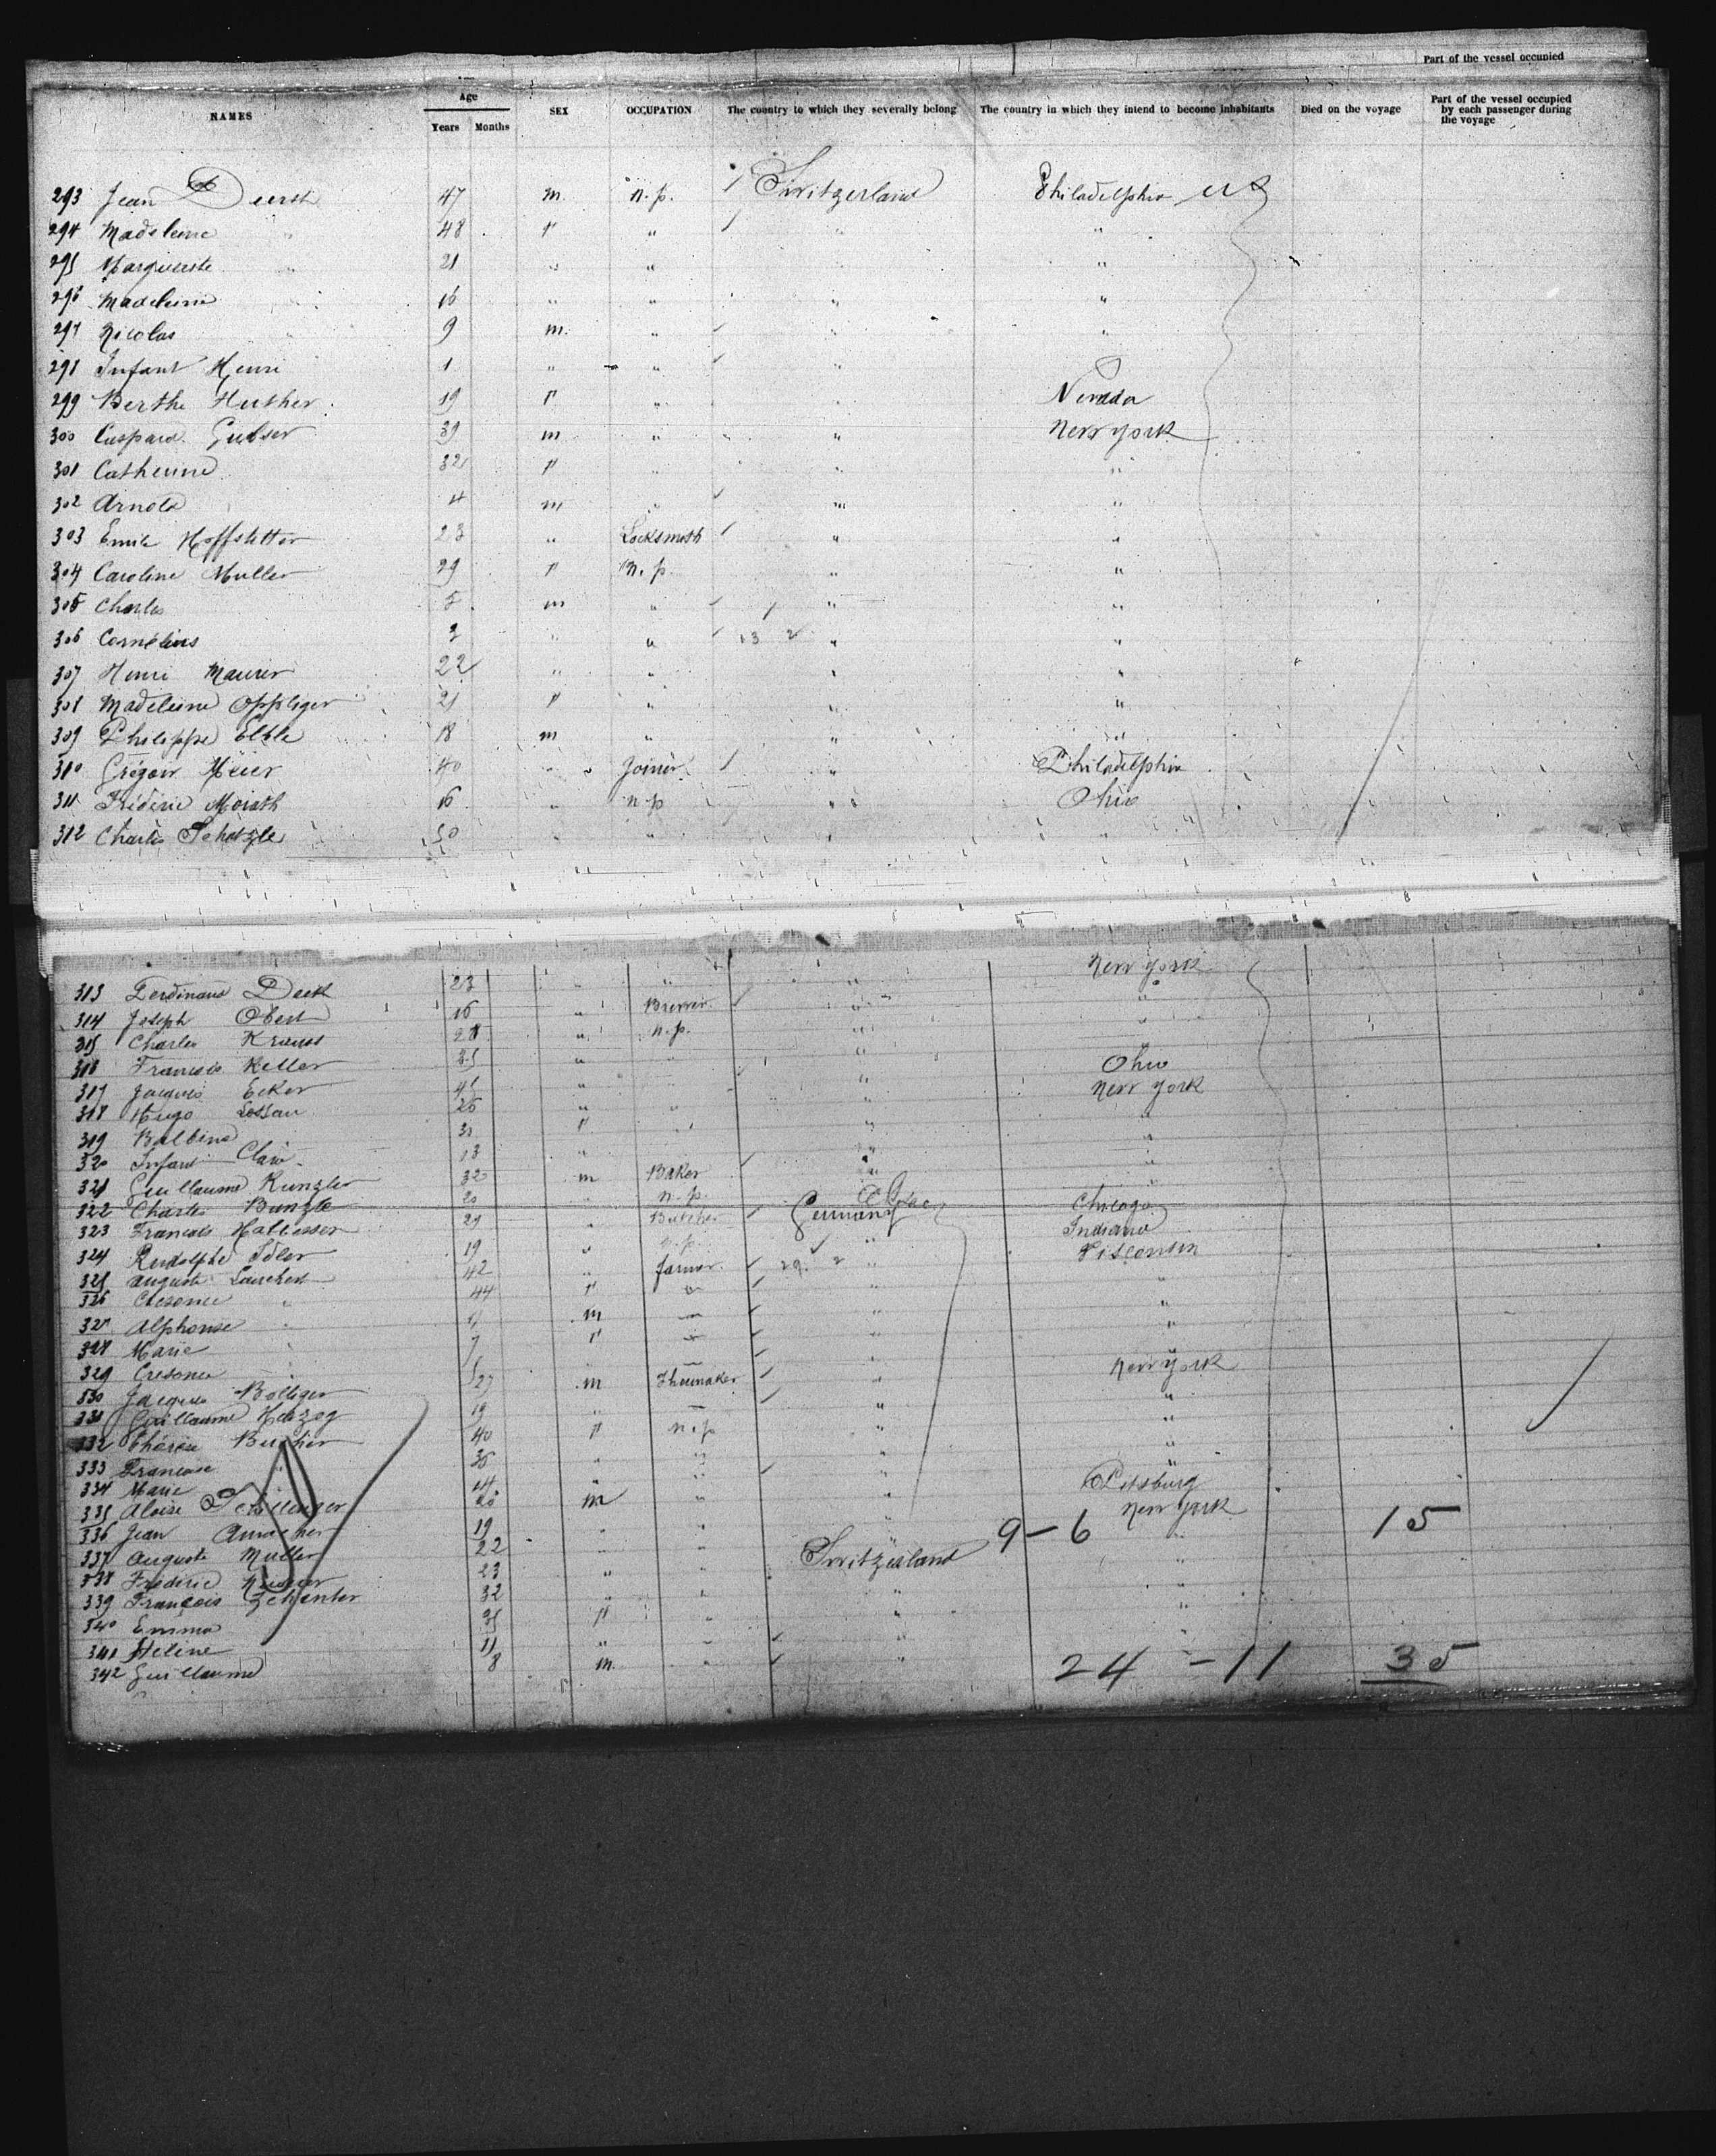 Part of the vessel occupied
NAMES Age Years Months SEX OCCUPATION The country to which they severally belong The country in which they intend to become inhabitants Died on the voyage Part of the vessel occupied by each passenger during the voyage
293 Jean Duerst 47 m n.p. Switzerland Philadelphia US
294 Madeleine " 48 f " " "
295 Marguerite " 21 " " " "
296 Madeleine " 16 " " " "
297 Nicolas 9 m " " "
298 Infant Henri 1 " " "
299 Berthe Husher 19 f " " Nevada
300 Caspard Gubser 39 m " " New york
301 Catherine 32 f " " "
302 Arnold 4 m " " "
303 Emile Hoffstetter 23 " Locksmith " "
304 Caroline Muller 29 f n.p. " "
305 Charles 5 m " " "
306 Cornelius 3 " " 13 2 " "
307 Henri Maurer 22 " " " "
308 Madeleine Oppliger 21 f " " "
309 Philippe Elble 18 m " " "
310 Grégoir Meier 40 " Joiner " Philadelphia
311 Fréderic Morath 16 " n.p " Ohio
312 Charles Schatzle 50 " " " "
313 Ferdinand Deck 23 " " " New york
314 Joseph Obert 16 " Brewer " "
315 Charles Krauss 28 " n.p. " "
316 Francois Keller 35 " " " Ohio
317 Jacques Ecker 41 " " New york
318 Hugo Lossau 26 " " " "
319 Balbine 30 f " " "
320 Infant Clara 13 " " "
321 Guillaume Kunzler 32 m Baker " "
322 Charles Bunzle 20 " n.p. " Chicago
323 Francois Halbesser 29 " Butcher Germany Indiana
324 Rudolphe Idler 19 " n.p. " Wisconsin
325 Auguste Lauchert 42 " farmer 29. 2 " "
326 Cresence " 44 f " "
327 Alphonse " m " "
328 Marie " 7 f "
329 Cresence " New york
330 Jacques Bolliger 27 m Shoemaker " "
331 Guillaume Herzog 19 " " "
332 Thérèse Bucher 40 f n.p " "
333 Francoise " 36 " " " "
334 Marie 14 " " " Pitsburg
335 Aloise 20 m " " New york
336 Jean Amacher 19 " " " 9-6 " 15
337 Auguste Muller 22 " " Switzerland "
338 Fréderic 23 " " " "
339 François Zehenter 32 " " " "
340 Emma 35 f " "
341 Heléne 11 " " "
342 Guillaume 8 m " " 24-11 35